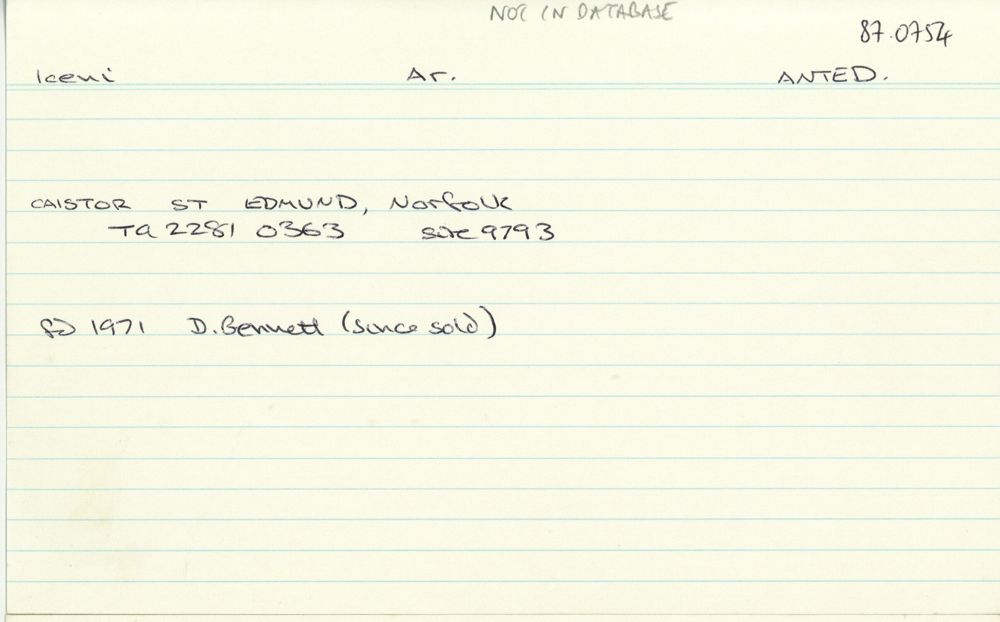 NOT IN DATABASE
87.0754
Iceni Ar. ANTED.
CAISTOR ST EDMUND, Norfolk
TG 2281 0363 site 9793
fd 1971 D. Bennett (since sold)